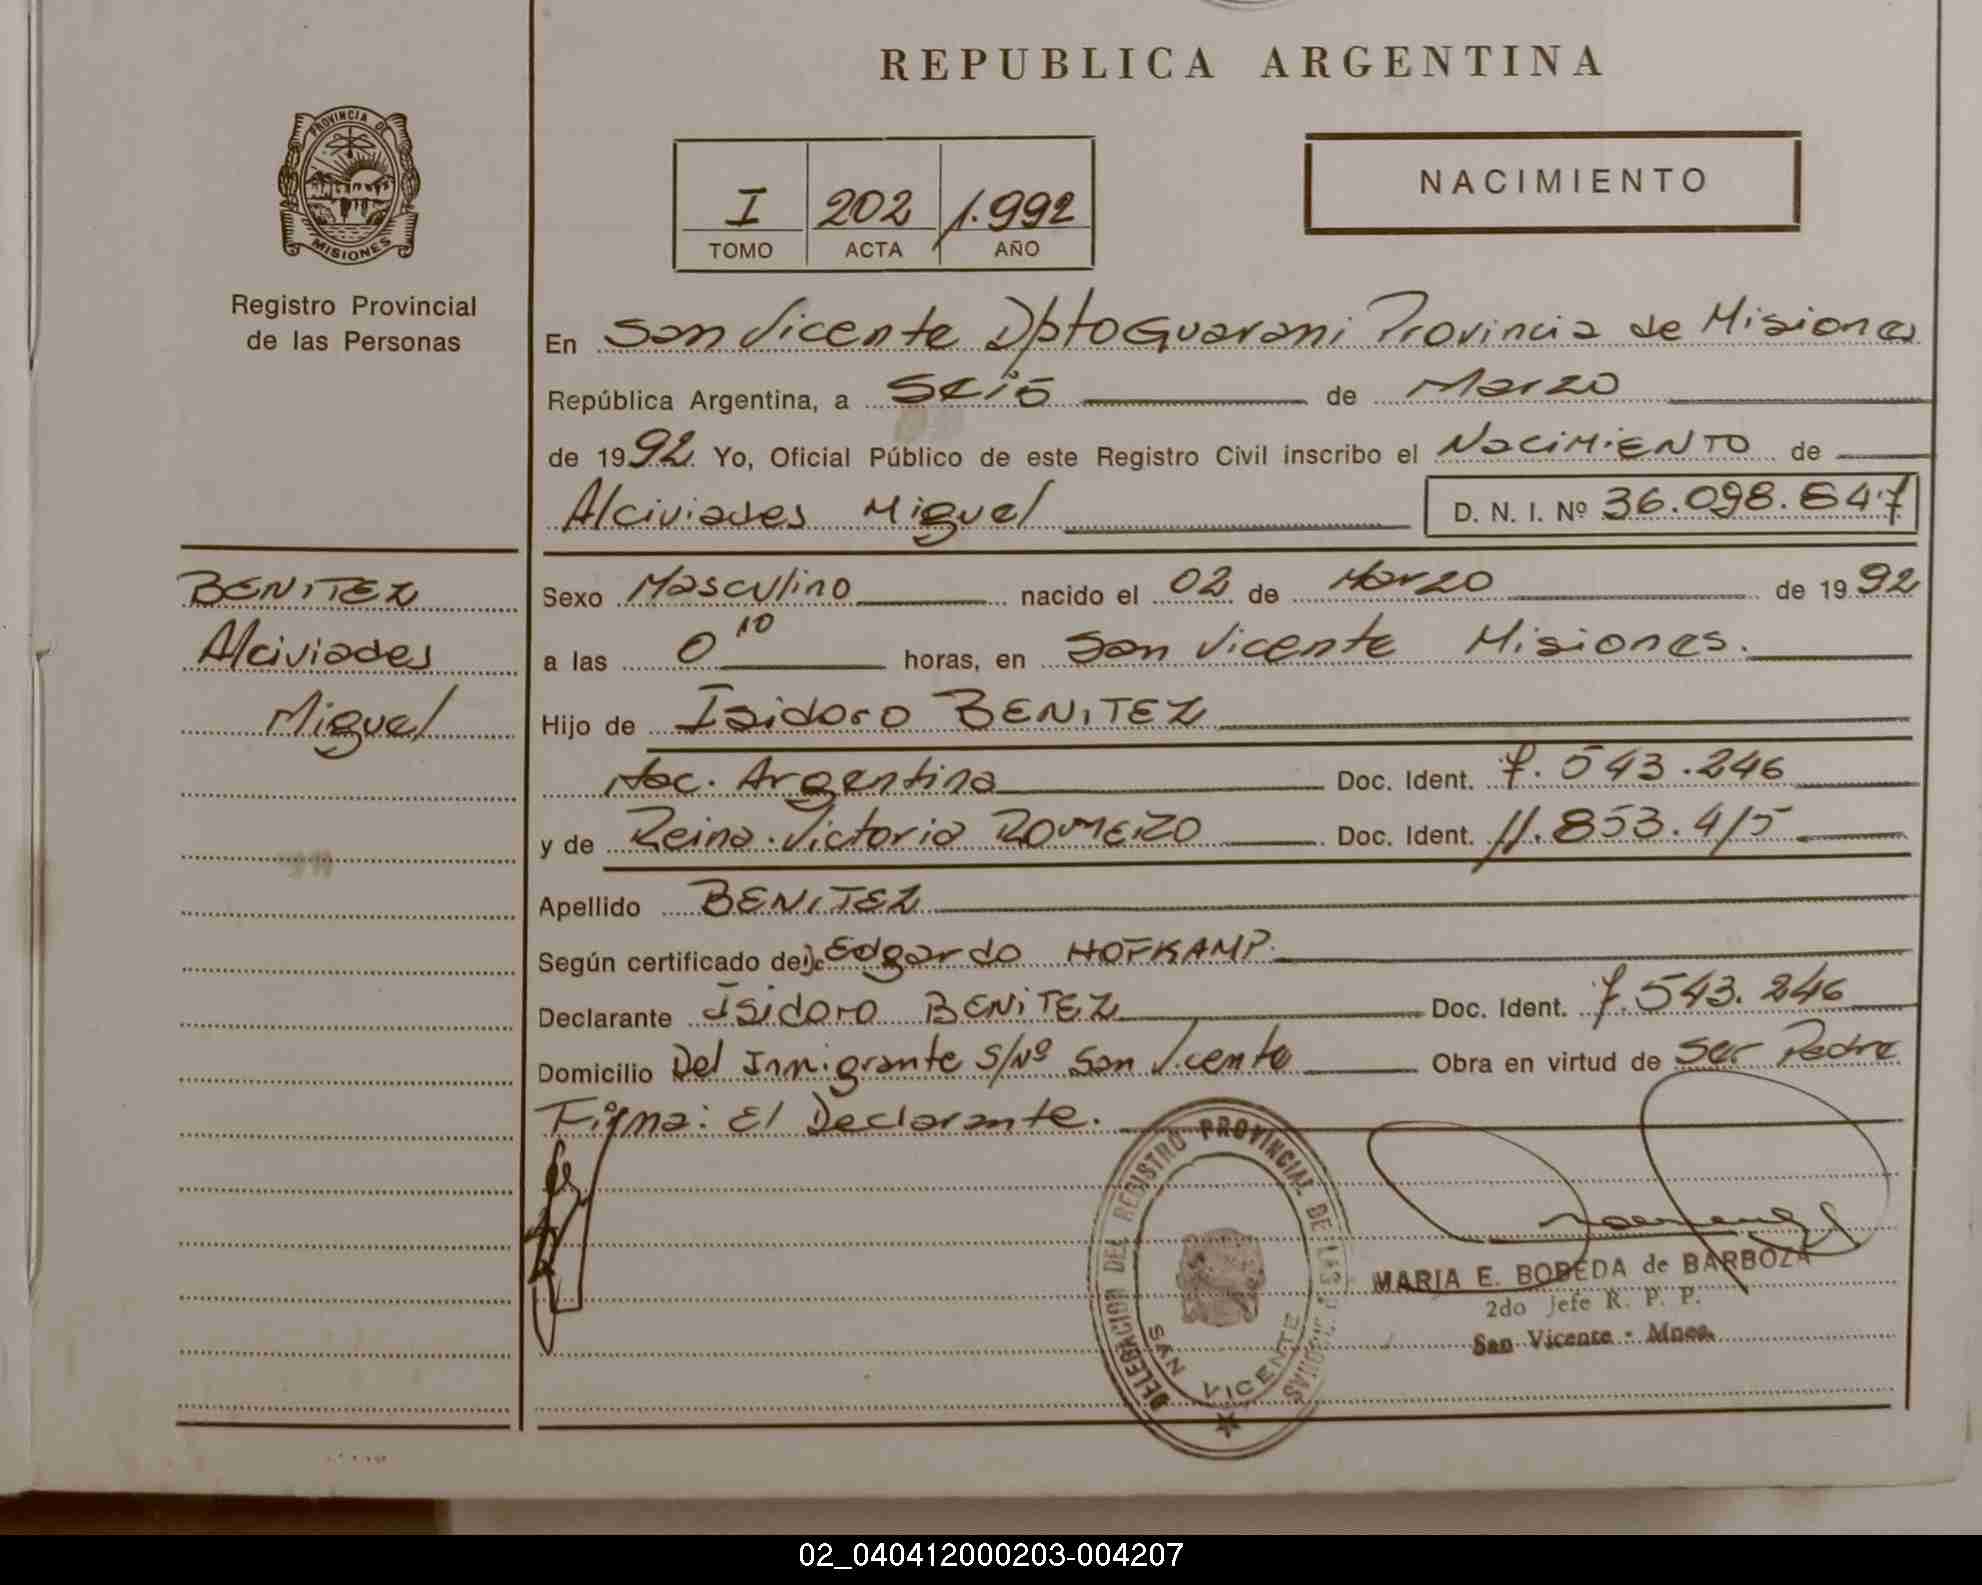 REPUBLICA ARGENTINA
PROVINCIA DE
MISIONES
Registro Provincial
de las Personas
I 202 1.992
TOMO ACTA AÑO
NACIMIENTO
En San Vicente Dpto Guarani Provincia de Misiones
República Argentina, a Seis de Marzo
de 1992 Yo, Oficial Público de este Registro Civil inscribo el Nacimiento de
Alciviades Miguel D. N. I. Nº 36.098.647
BENITEZ
Alciviades
Miguel
Sexo Masculino nacido el 02 de Marzo de 1992
a las 0 10 horas, en San Vicente Misiones.
Hijo de Isidoro BENITEZ
Nac. Argentina Doc. Ident. 7.543.246
y de Reina Victoria ROMERO Doc. Ident. 11.853.415
Apellido BENITEZ
Según certificado de Edgardo HOFKAMP.
Declarante Isidoro BENITEZ Doc. Ident. 7.543.246
Domicilio Del Inmigrante S/Nº San Vicente Obra en virtud de Ser Padre
Firma: El Declarante.
DELEGACION DEL REGISTRO PROVINCIAL DE LAS PERSONAS
SAN VICENTE
MARIA E. BOBEDA de BARBOZA
2do Jefe R. P. P.
San Vicente - Mnes.
02_040412000203-004207